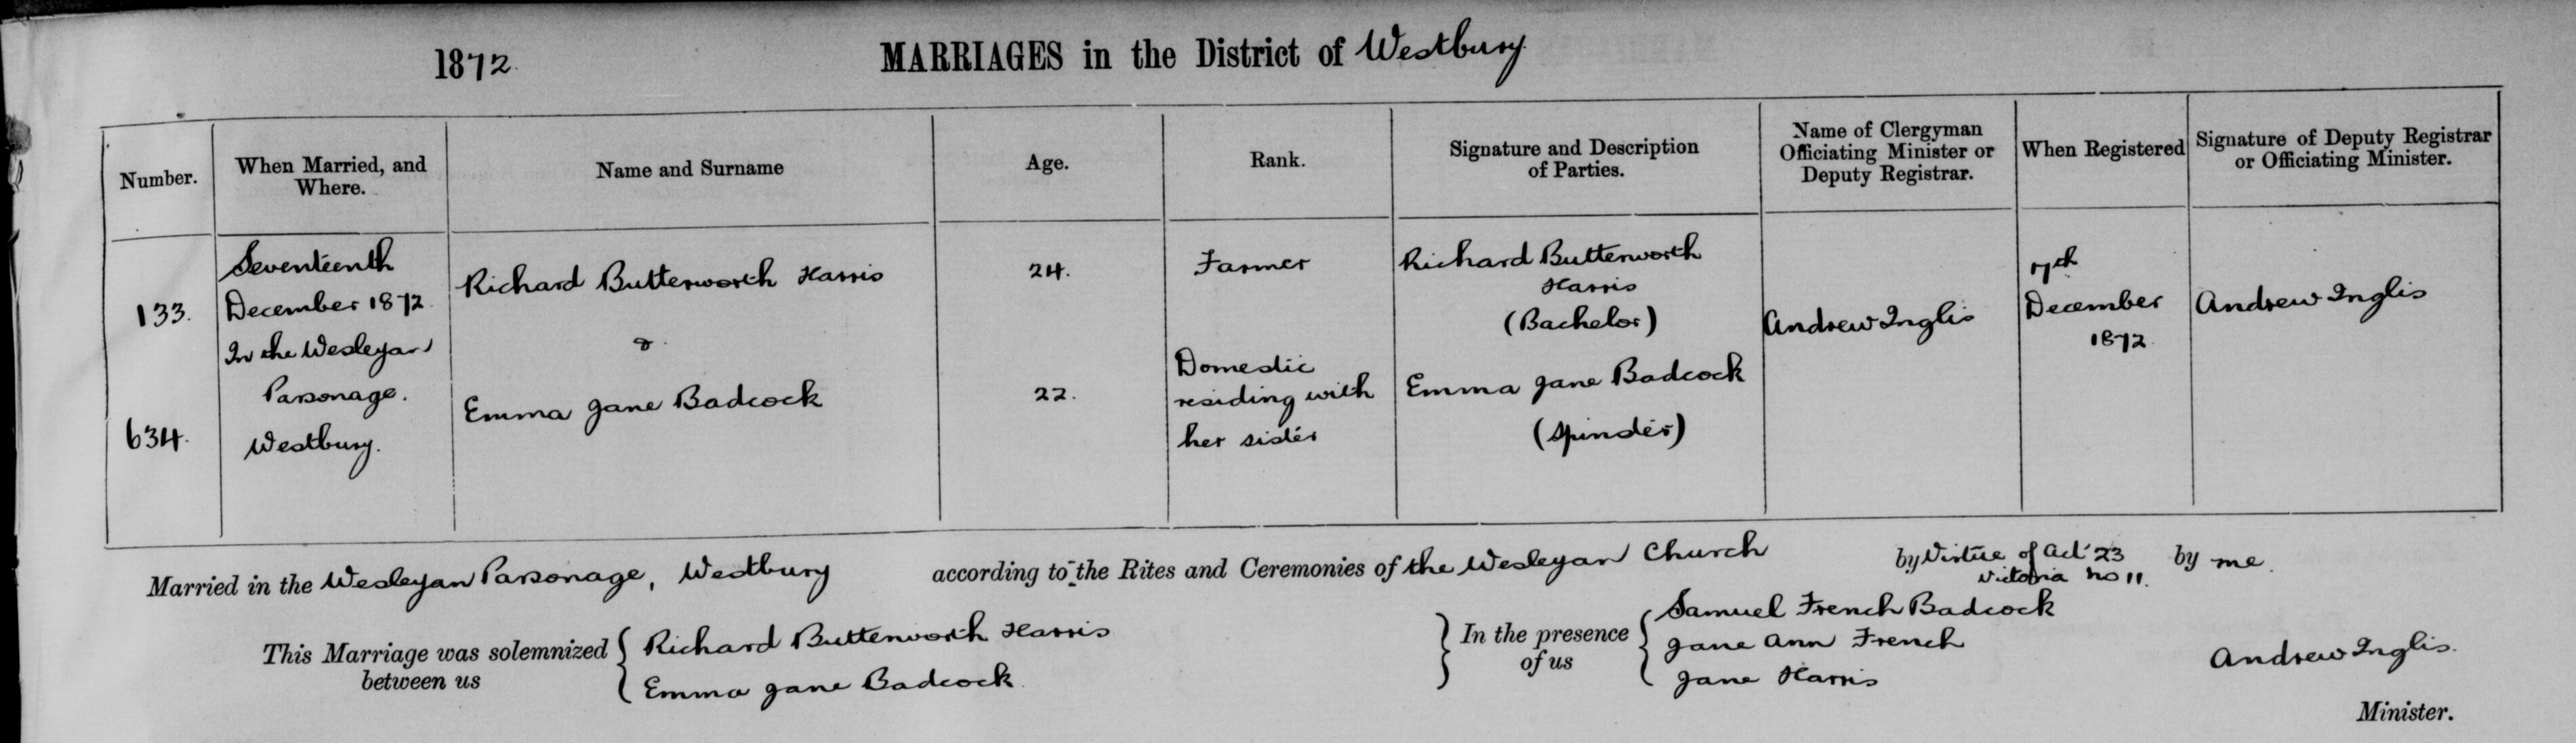 1872.
MARRIAGES in the District of Westbury.
Number.
When Married, and
Where.
Name and Surname
Age.
Rank.
Signature and Description
of Parties.
Name of Clergyman
Officiating Minister or
Deputy Registrar.
When Registered
Signature of Deputy Registrar
or Officiating Minister.
133.
634.
Seventeenth
December 1872.
In the Wesleyan
Parsonage.
Westbury.
Richard Butterworth Harris
&
Emma Jane Badcock
24.
22.
Farmer
Domestic
residing with
her sister
Richard Butterworth
Harris
(Bachelor)
Emma Jane Badcock
(Spinster)
Andrew Inglis
17th
December
1872.
Andrew Inglis
Married in the Wesleyan Parsonage, Westbury according to the Rites and Ceremonies of the Wesleyan Church by Virtue of Act 23 by me.
Victoria No 11.
This Marriage was solemnized
between us
Richard Butterworth Harris
Emma Jane Badcock.
In the presence
of us
Samuel French Badcock
Jane Ann French
Jane Harris
Andrew Inglis.
Minister.